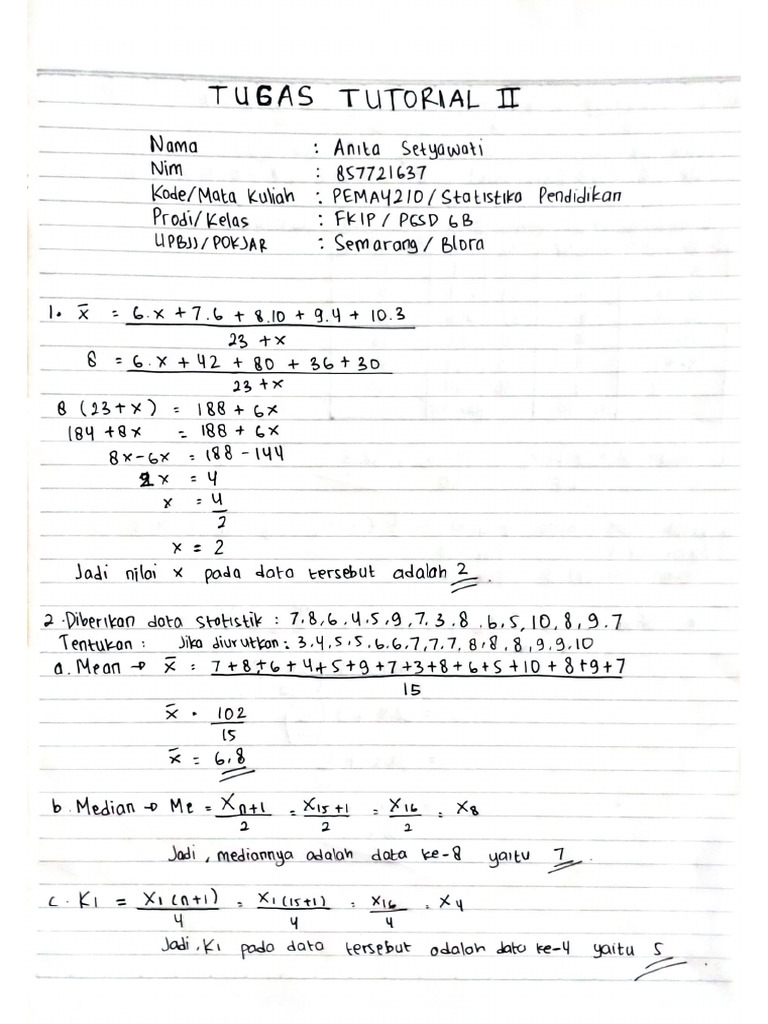 TUGAS TUTORIAL II
Nama : Anita Setyawati
Nim : 857721637
Kode/Mata Kuliah : PEMA4210/Statistika Pendidikan
Prodi/Kelas : FKIP / PGSD 6B
UPBJJ/POKJAR : Semarang/Blora
1. x̄ = 6.x + 7.6 + 8.10 + 9.4 + 10.3
23 + x
8 = 6.x + 42 + 80 + 36 + 30
23 + x
8 (23 + x) = 188 + 6x
184 + 8x = 188 + 6x
8x - 6x = 188 - 144
2x = 4
x = 4
2
x = 2
Jadi nilai x pada data tersebut adalah 2.
2. Diberikan data statistik : 7,8,6,4,5,9,7,3,8,6,5,10,8,9,7
Tentukan : Jika diurutkan : 3,4,5,5,6,6,7,7,7,8,8,8,9,9,10
a. Mean → x̄ = 7+8+6+4+5+9+7+3+8+6+5+10+8+9+7
15
x̄ = 102
15
x̄ = 6,8
b. Median → Me = X n+1 = X 15+1 = X 16 = X8
2 2 2
Jadi, mediannya adalah data ke-8 yaitu 7.
c. K1 = X1(n+1) = X1(15+1) = X16 = X4
4 4 4
Jadi, K1 pada data tersebut adalah data ke-4 yaitu 5